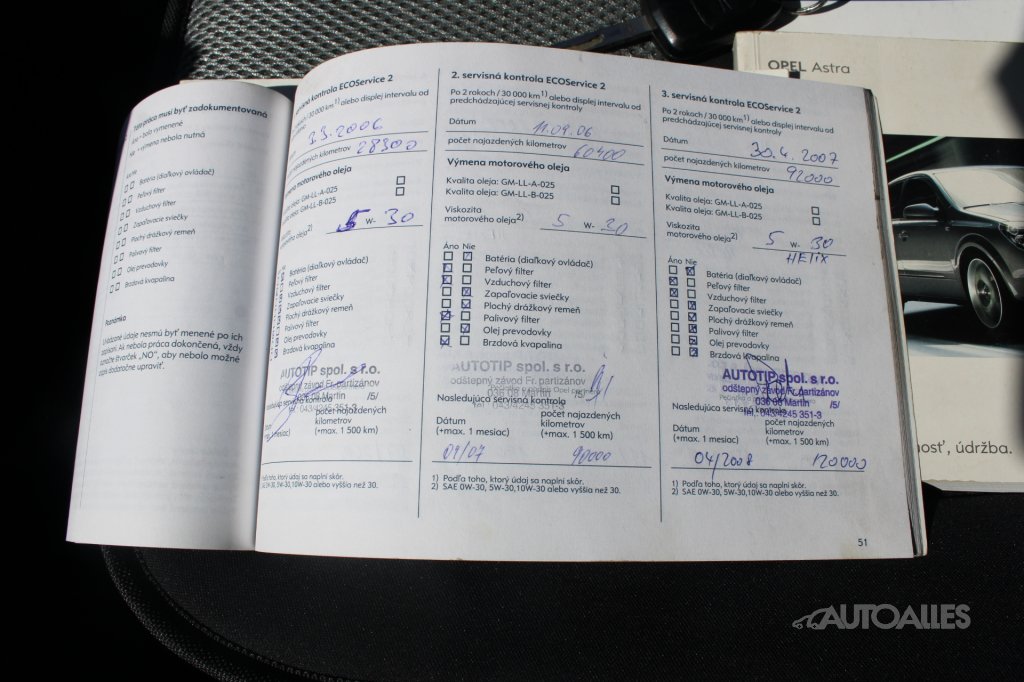 Táto práca musí byť zadokumentovaná
Áno = bolo vymenené
Nie = výmena nebola nutná
Áno Nie
Batéria (diaľkový ovládač)
Peľový filter
Vzduchový filter
Zapaľovacie sviečky
Plochý drážkový remeň
Palivový filter
Olej prevodovky
Brzdová kvapalina
Poznámka
Uvádzané údaje nesmú byť menené po ich
Ak nebola práca dokončená, vždy
štvorček „NO", aby nebolo možné
dodatočne upraviť.
servisná kontrola ECOService 2
/30 000 km1) alebo displej intervalu od
3.3.2006
najazdených kilometrov 28300
Výmena motorového oleja
oleja: GM-LL-A-025
oleja: GM-LL-B-025
oleja2) 5 W- 30
Batéria (diaľkový ovládač)
Peľový filter
Vzduchový filter
Zapaľovacie sviečky
Plochý drážkový remeň
Palivový filter
Olej prevodovky
Brzdová kvapalina
AUTOTIP spol. s r.o.
odštepný závod Fr. partizánov
036 08 Martin /5/
servisná kontrola
Tel.: 043/4245 351-3
počet najazdených
kilometrov
(+max. 1 mesiac) (+max. 1 500 km)
1) Podľa toho, ktorý údaj sa naplní skôr.
5W-30,10W-30 alebo vyššia než 30.
2. servisná kontrola ECOService 2
Po 2 rokoch / 30 000 km1) alebo displej intervalu od
predchádzajúcej servisnej kontroly
Dátum 11.09.06
počet najazdených kilometrov 60400
Výmena motorového oleja
Kvalita oleja: GM-LL-A-025
Kvalita oleja: GM-LL-B-025
Viskozita
motorového oleja2) 5 W- 30
Áno Nie
Batéria (diaľkový ovládač)
Peľový filter
Vzduchový filter
Zapaľovacie sviečky
Plochý drážkový remeň
Palivový filter
Olej prevodovky
Brzdová kvapalina
AUTOTIP spol. s r.o.
odštepný závod Fr. partizánov
036 08 Martin /5/
Nasledujúca servisná kontrola
Tel.: 043/4245 351-3
Dátum počet najazdených
kilometrov
(+max. 1 mesiac) (+max. 1 500 km)
09/07 90000
1) Podľa toho, ktorý údaj sa naplní skôr.
2) SAE 0W-30, 5W-30,10W-30 alebo vyššia než 30.
3. servisná kontrola ECOService 2
Po 2 rokoch / 30 000 km1) alebo displej intervalu od
predchádzajúcej servisnej kontroly
Dátum 30.4.2007
počet najazdených kilometrov 92000
Výmena motorového oleja
Kvalita oleja: GM-LL-A-025
Kvalita oleja: GM-LL-B-025
Viskozita
motorového oleja2) 5 W- 30
HELIX
Áno Nie
Batéria (diaľkový ovládač)
Peľový filter
Vzduchový filter
Zapaľovacie sviečky
Plochý drážkový remeň
Palivový filter
Olej prevodovky
Brzdová kvapalina
AUTOTIP spol. s r.o.
odštepný závod Fr. partizánov
036 08 Martin /5/
Nasledujúca servisná kontrola
Tel.: 043/4245 351-3
Dátum počet najazdených
kilometrov
(+max. 1 mesiac) (+max. 1 500 km)
04/2008 120000
1) Podľa toho, ktorý údaj sa naplní skôr.
2) SAE 0W-30, 5W-30,10W-30 alebo vyššia než 30.
51
OPEL Astra
nosť, údržba.
AUTOALLES